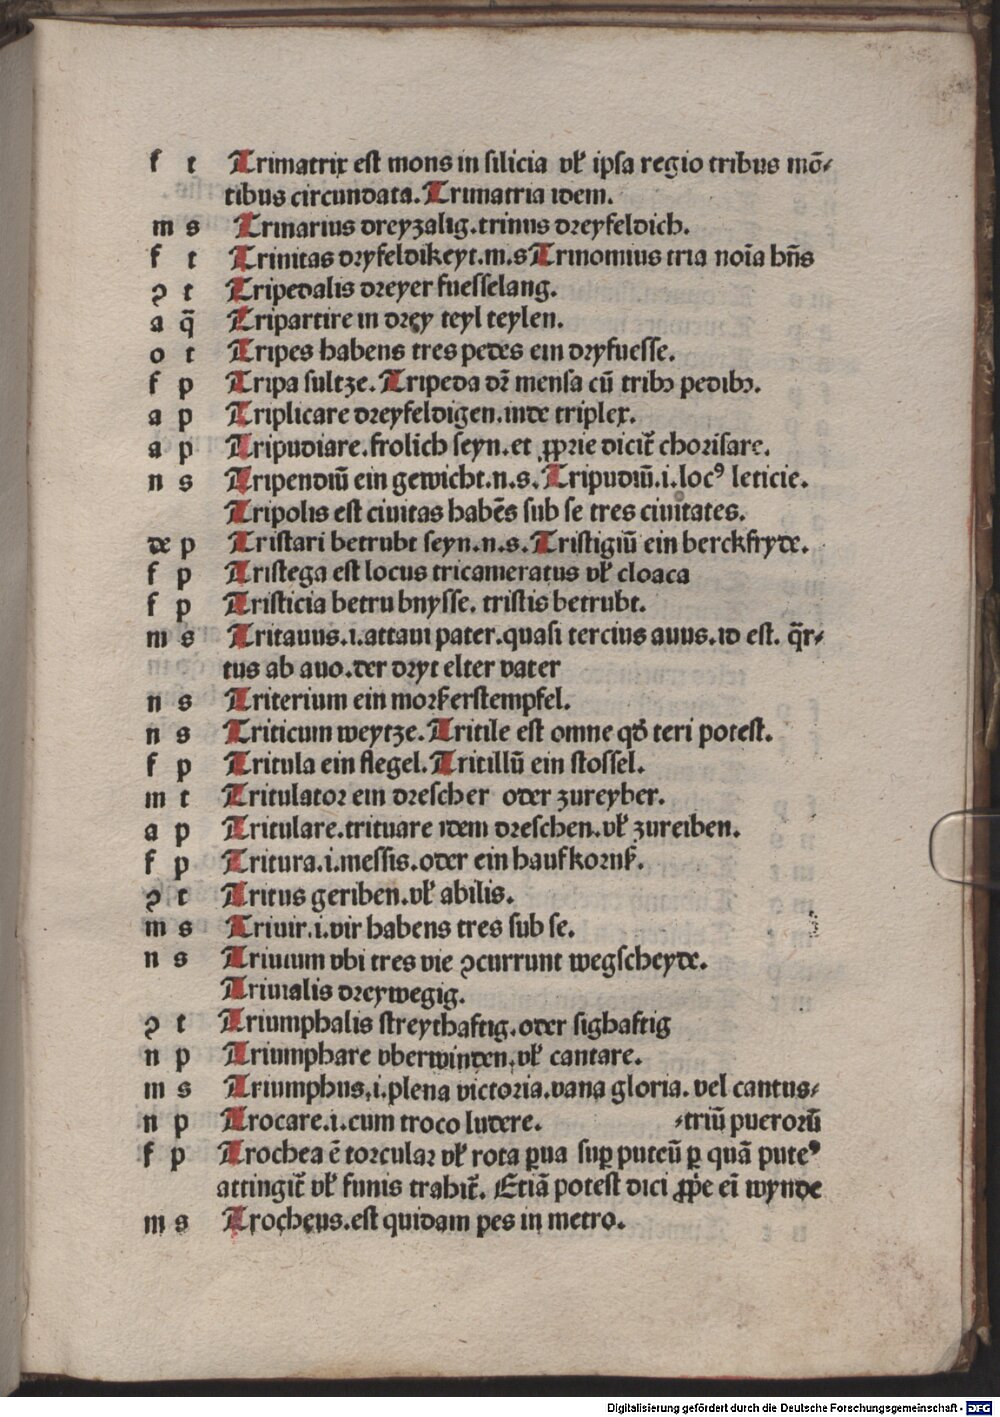 f t Trimatrix est mons in silicia vł ipsa regio tribus mō⸗
tibus circundata. Trimatria idem.
m s Trinarius dreyzalig. trinus dreyfeldich.
f t Trinitas dryfeldikeyt. m. s Trinomius tria noīa hñs
ꝯ t Tripedalis dreyer fuesselang.
a q̄ Tripartire in drey teyl teylen.
o t Tripes habens tres pedes ein dryfuesse.
f p Tripa sultze. Tripeda dr̄ mensa cū tribꝫ pedibꝫ.
a p Triplicare dreyfeldigen. inde triplex.
a p Tripudiare. frolich seyn. et ꝓprie dicit̄ chorisare.
n s Tripendiū ein gewicht. n. s. Tripudiū. i. locꝰ leticie.
Tripolis est ciuitas habēs sub se tres ciuitates.
de p Tristari betrubt seyn. n. s. Tristigiū ein berckfryde.
f p Tristega est locus tricameratus vł cloaca
f p Tristicia betrubnysse. tristis betrubt.
m s Tritauus. i. attaui pater. quasi tercius auus. id est. q̄r⸗
tus ab auo. der dryt elter vater
n s Triterium ein morßerstempfel.
n s Triticum weytze. Tritile est omne qđ teri potest.
f p Tritula ein flegel. Tritillū ein stossel.
m t Tritulator ein drescher oder zureyber.
a p Tritulare. trituare idem dreschen. vł zureiben.
f p Tritura. i. messis. oder ein hauf kornß.
ꝯ t Tritus geriben. vł abilis.
m s Triuir. i. vir habens tres sub se.
n s Triuium vbi tres vie ꝯcurrunt wegscheyde.
Triuialis dreywegig.
ꝯ t Triumphalis streythaftig. oder sighaftig
n p Triumphare vberwinden. vł cantare.
m s Triumphus. i. plena victoria. vana gloria. vel cantus⸗
n p Trocare. i. cum troco ludere. ⸗triū puerorū
f p Trochea ē torcular vł rota ꝑua suꝑ puteū ꝑ quā puteꝰ
attingit̄ vł funis trahit̄. Etiā potest dici ꝓpe ei wynde
m s Trocheus. est quidam pes in metro.
Digitalisierung gefördert durch die Deutsche Forschungsgemeinschaft - DFG